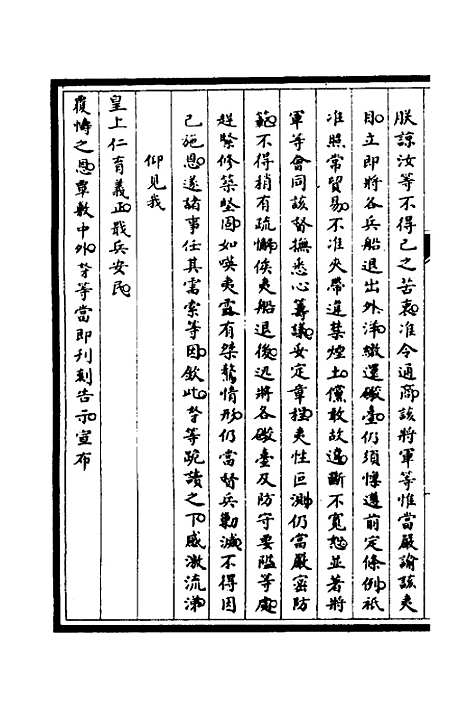 朕諒汝等不得已之苦衷准令通商該將軍等惟當嚴諭該夷
目立即將各兵船退出外洋繳還礮臺仍須懍遵前定條例祇
准照常貿易不准夾帶違禁煙土儻敢故違斷不寬恕並著將
軍等會同該督撫悉心籌議妥定章程夷性叵測仍當嚴密防
範不得稍有疏懈俟夷船退後迅將各礮臺及防守要隘等處
趕緊修築堅固如𠸄夷露有桀驁情形仍當督兵勦滅不得因
已施恩遂諸事任其需索等因欽此。等等跪讀之下感激流涕
仰見我
皇上仁育義正戢兵安民
覆幬之恩覃敷中外。等當即刊刻告示宣布